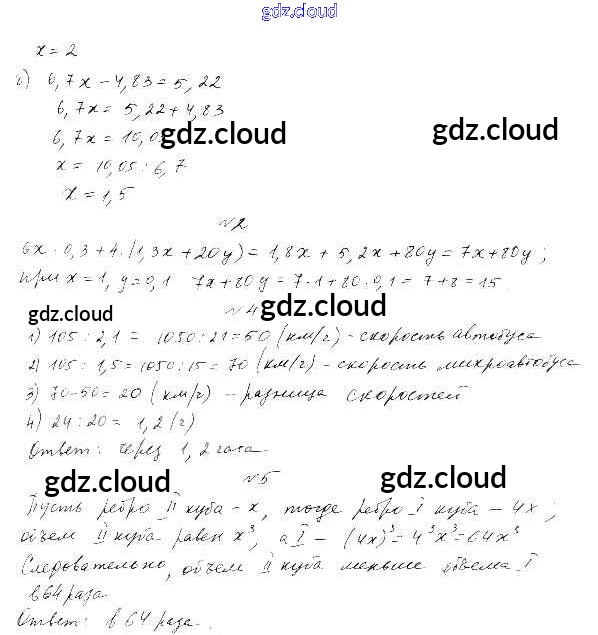 gdz.cloud
x = 2
б) 6,7x - 4,83 = 5,22
6,7x = 5,22 + 4,83
6,7x = 10,05
gdz.cloud
gdz.cloud
x = 10,05 : 6,7
x = 1,5
№2
6x · 0,3 + 4 · (1,3x + 20y) = 1,8x + 5,2x + 80y = 7x + 80y ;
при x = 1, y = 0,1 7x + 80y = 7·1 + 80·0,1 = 7 + 8 = 15.
№4
gdz.cloud
gdz.cloud
1) 105 : 2,1 = 1050 : 21 = 50 (км/г) - скорость автобуса
2) 105 : 1,5 = 1050 : 15 = 70 (км/г) - скорость микроавтобуса
3) 70 - 50 = 20 (км/г) - разница скоростей
4) 24 : 20 = 1,2 (г)
Ответ: через 1,2 часа.
№5
gdz.cloud
gdz.cloud
Пусть ребро II куба - x, тогда ребро I куба - 4x ;
объем II куба равен x³, а I - (4x)³ = 4³x³ = 64x³
Следовательно, объем II куба меньше объема I
в 64 раза
Ответ: в 64 раза.